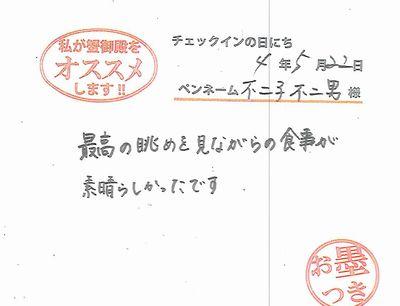 私が蟹御殿を
オススメ
します!!
チェックインの日にち
4年5月22日
ペンネーム 不二子不二男 様
最高の眺めを見ながらの食事が
素晴らしかったです
お墨
つき